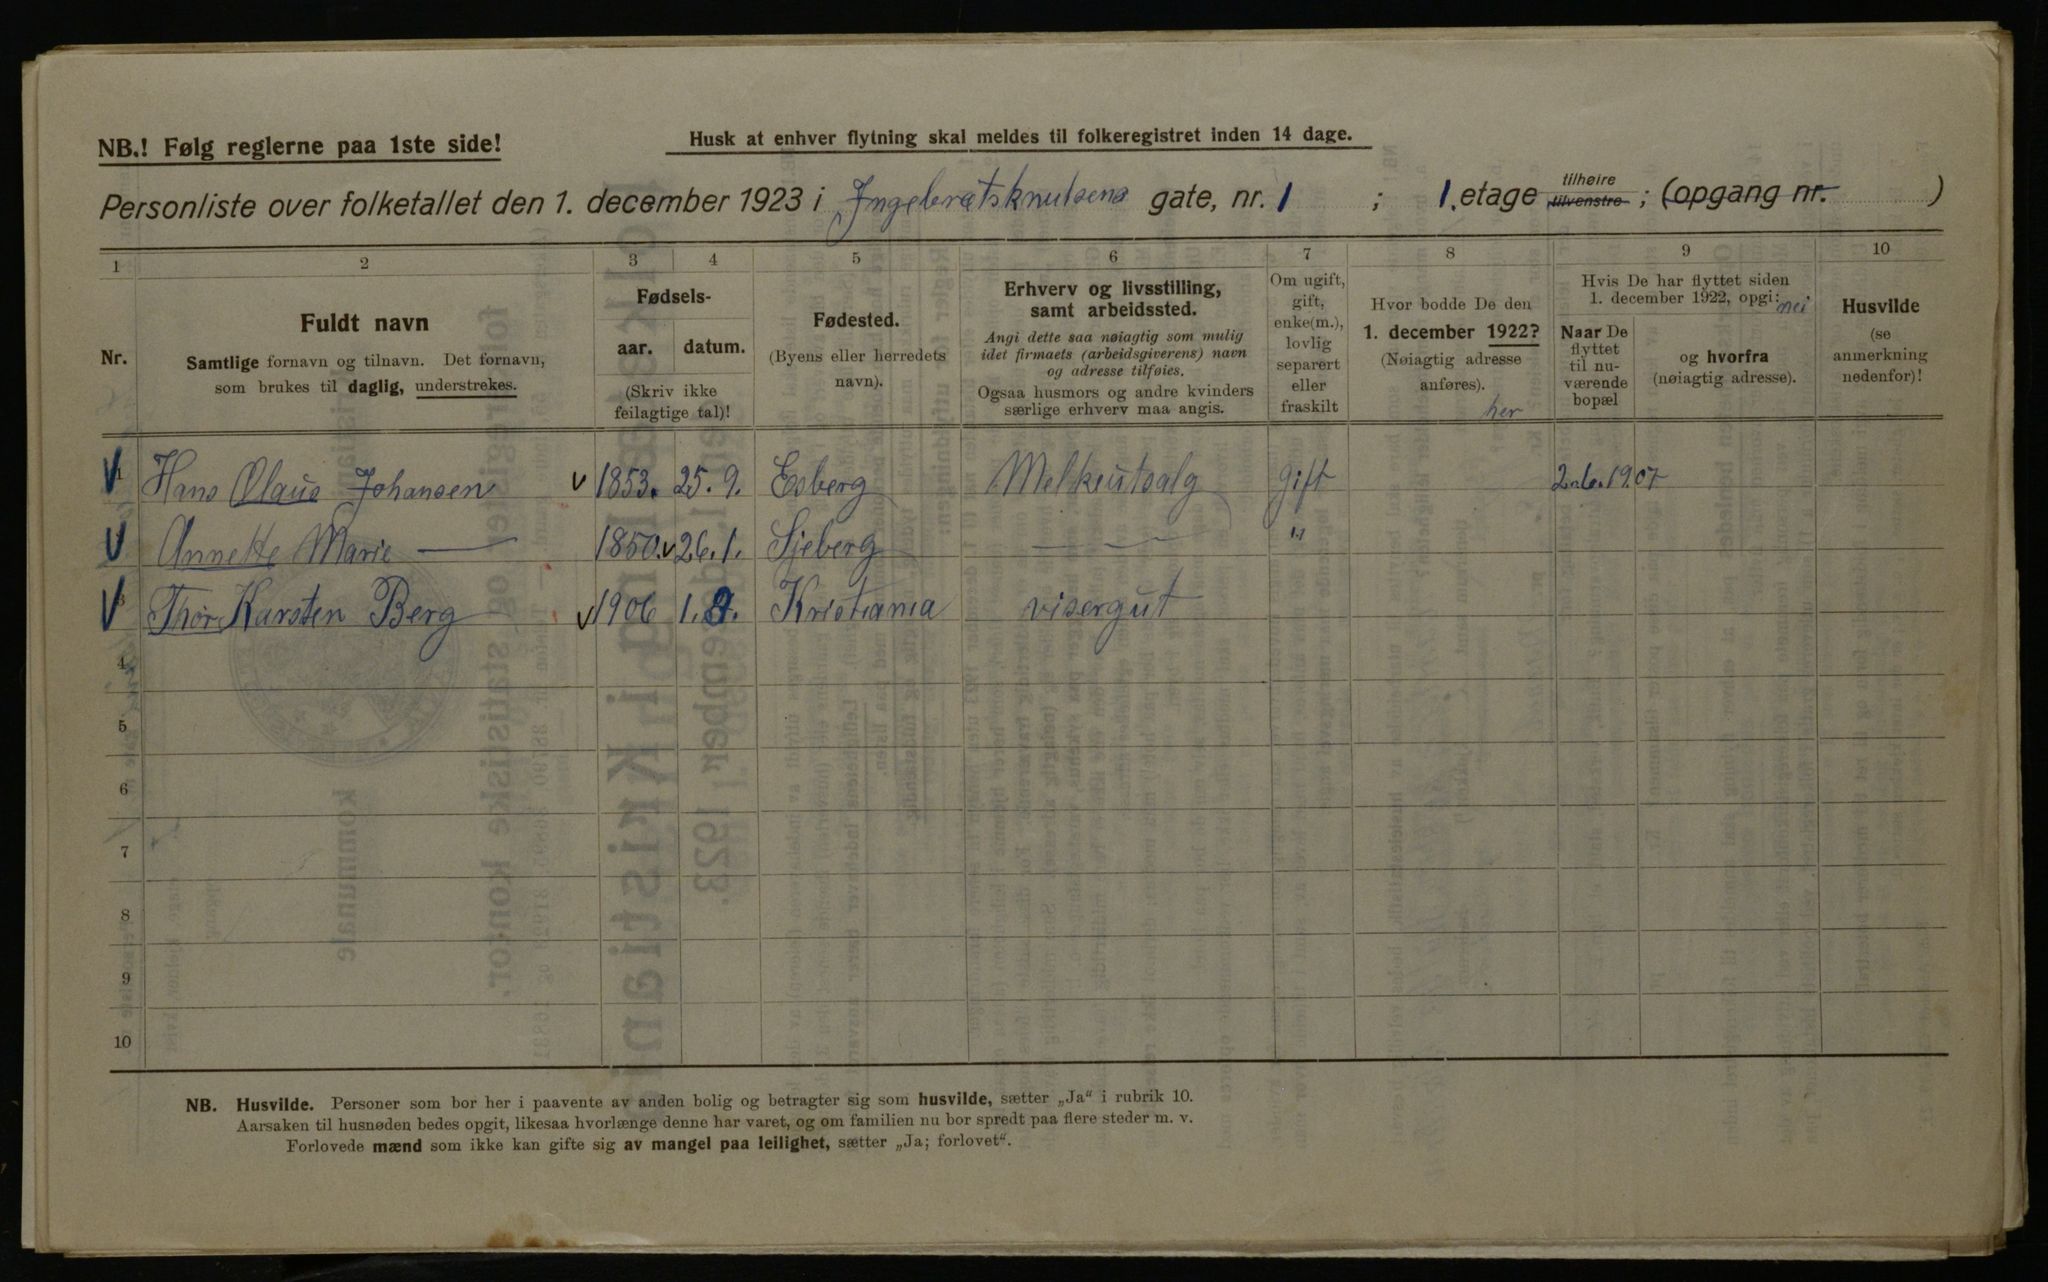 NB.! Følg reglerne paa 1ste side!
Husk at enhver flytning skal meldes til folkeregistret inden 14 dage.
Personliste over folketallet den 1. december 1923 i Ingebretsknutsens gate, nr. 1 ; 1. etage tilhøire tilvenstre ; (opgang nr. )
1 2 3 4 5 6 7 8 9 10
Nr.
Fuldt navn
Samtlige fornavn og tilnavn. Det fornavn,
som brukes til daglig, understrekes.
Fødsels-
aar. datum.
(Skriv ikke
feilagtige tal)!
Fødested.
(Byens eller herredets
navn).
Erhverv og livsstilling,
samt arbeidssted.
Angi dette saa nøiagtig som mulig
idet firmaets (arbeidsgiverens) navn
og adresse tilføies.
Ogsaa husmors og andre kvinders
særlige erhverv maa angis.
Om ugift,
gift,
enke(m.),
lovlig
separert
eller
fraskilt
Hvor bodde De den
1. december 1922?
(Nøiagtig adresse
anføres).
her
Hvis De har flyttet siden
1. december 1922, opgi: nei
Naar De
flyttet
til nu-
værende
bopæl
og hvorfra
(nøiagtig adresse).
Husvilde
(se
anmerkning
nedenfor)!
1 Hans Olaus Johansen 1853. 25. 9. Esberg Melkeutsalg gift 2.6.1907
Annette Marie — 1850. 26. 1. Sjeberg — — "
3 Thor Karsten Berg 1906 1. 9. Kristiania visergut
4
5
6
7
8
9
10
NB. Husvilde. Personer som bor her i paavente av anden bolig og betragter sig som husvilde, sætter „Ja" i rubrik 10.
Aarsaken til husnøden bedes opgit, likesaa hvorlænge denne har varet, og om familien nu bor spredt paa flere steder m. v.
Forlovede mænd som ikke kan gifte sig av mangel paa leilighet, sætter „Ja; forlovet".